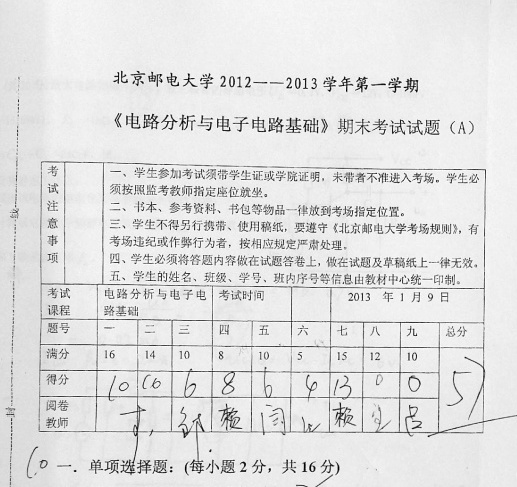 北京邮电大学2012——2013学年第一学期
《电路分析与电子电路基础》期末考试试题（A）
考试注意事项
一、学生参加考试须带学生证或学院证明，未带者不准进入考场。学生必
须按照监考教师指定座位就坐。
二、书本、参考资料、书包等物品一律放到考场指定位置。
三、学生不得另行携带、使用稿纸，要遵守《北京邮电大学考场规则》，有
考场违纪或作弊行为者，按相应规定严肃处理。
四、学生必须将答题内容做在试题答卷上，做在试题及草稿纸上一律无效。
五、学生的姓名、班级、学号、班内序号等信息由教材中心统一印制。
考试课程 电路分析与电子电路基础 考试时间 2013 年 1 月 9 日
题号 一 二 三 四 五 六 七 八 九 总分
满分 16 14 10 8 10 5 15 12 10
得分 10 10 6 8 6 4 13 0 0 57
阅卷教师 邹 赖 闫 赖 吕
10 一．单项选择题：(每小题 2 分，共 16 分)